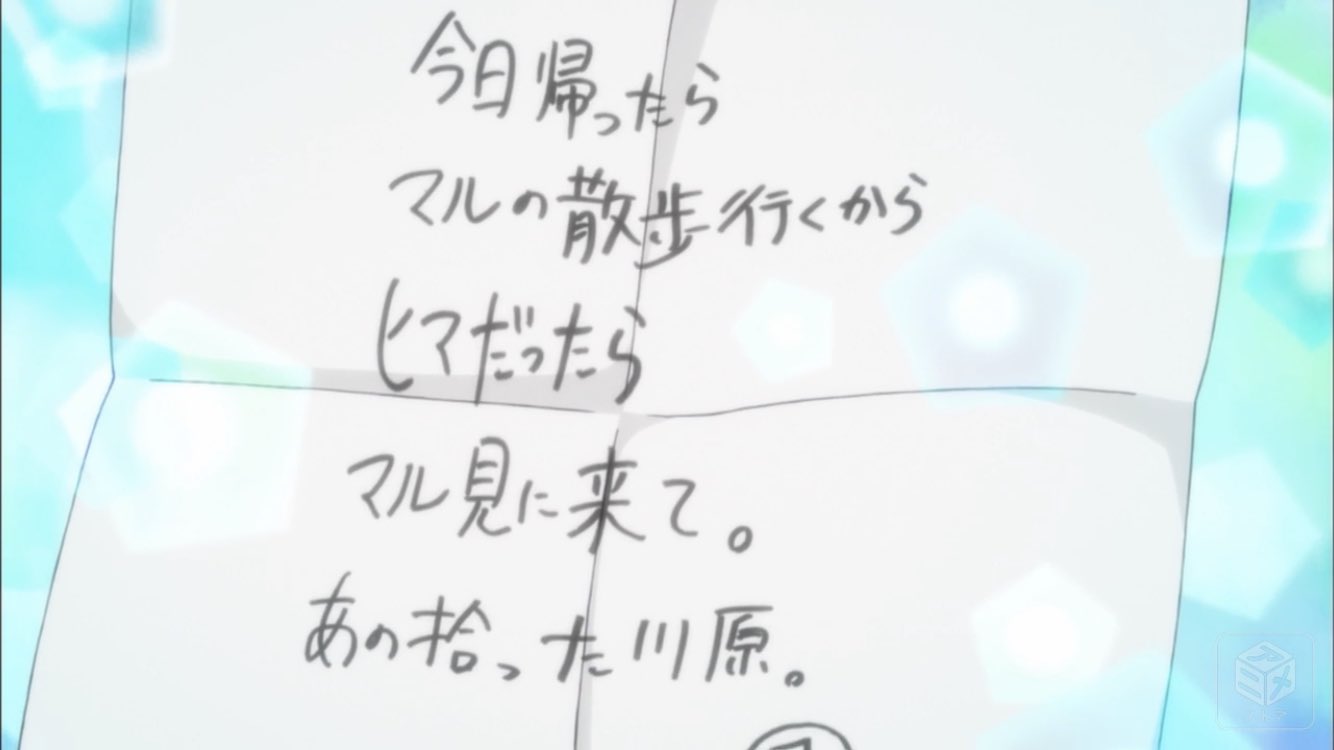 今日帰ったら
マルの散歩行くから
ヒマだったら
マル見に来て。
あの拾った川原。